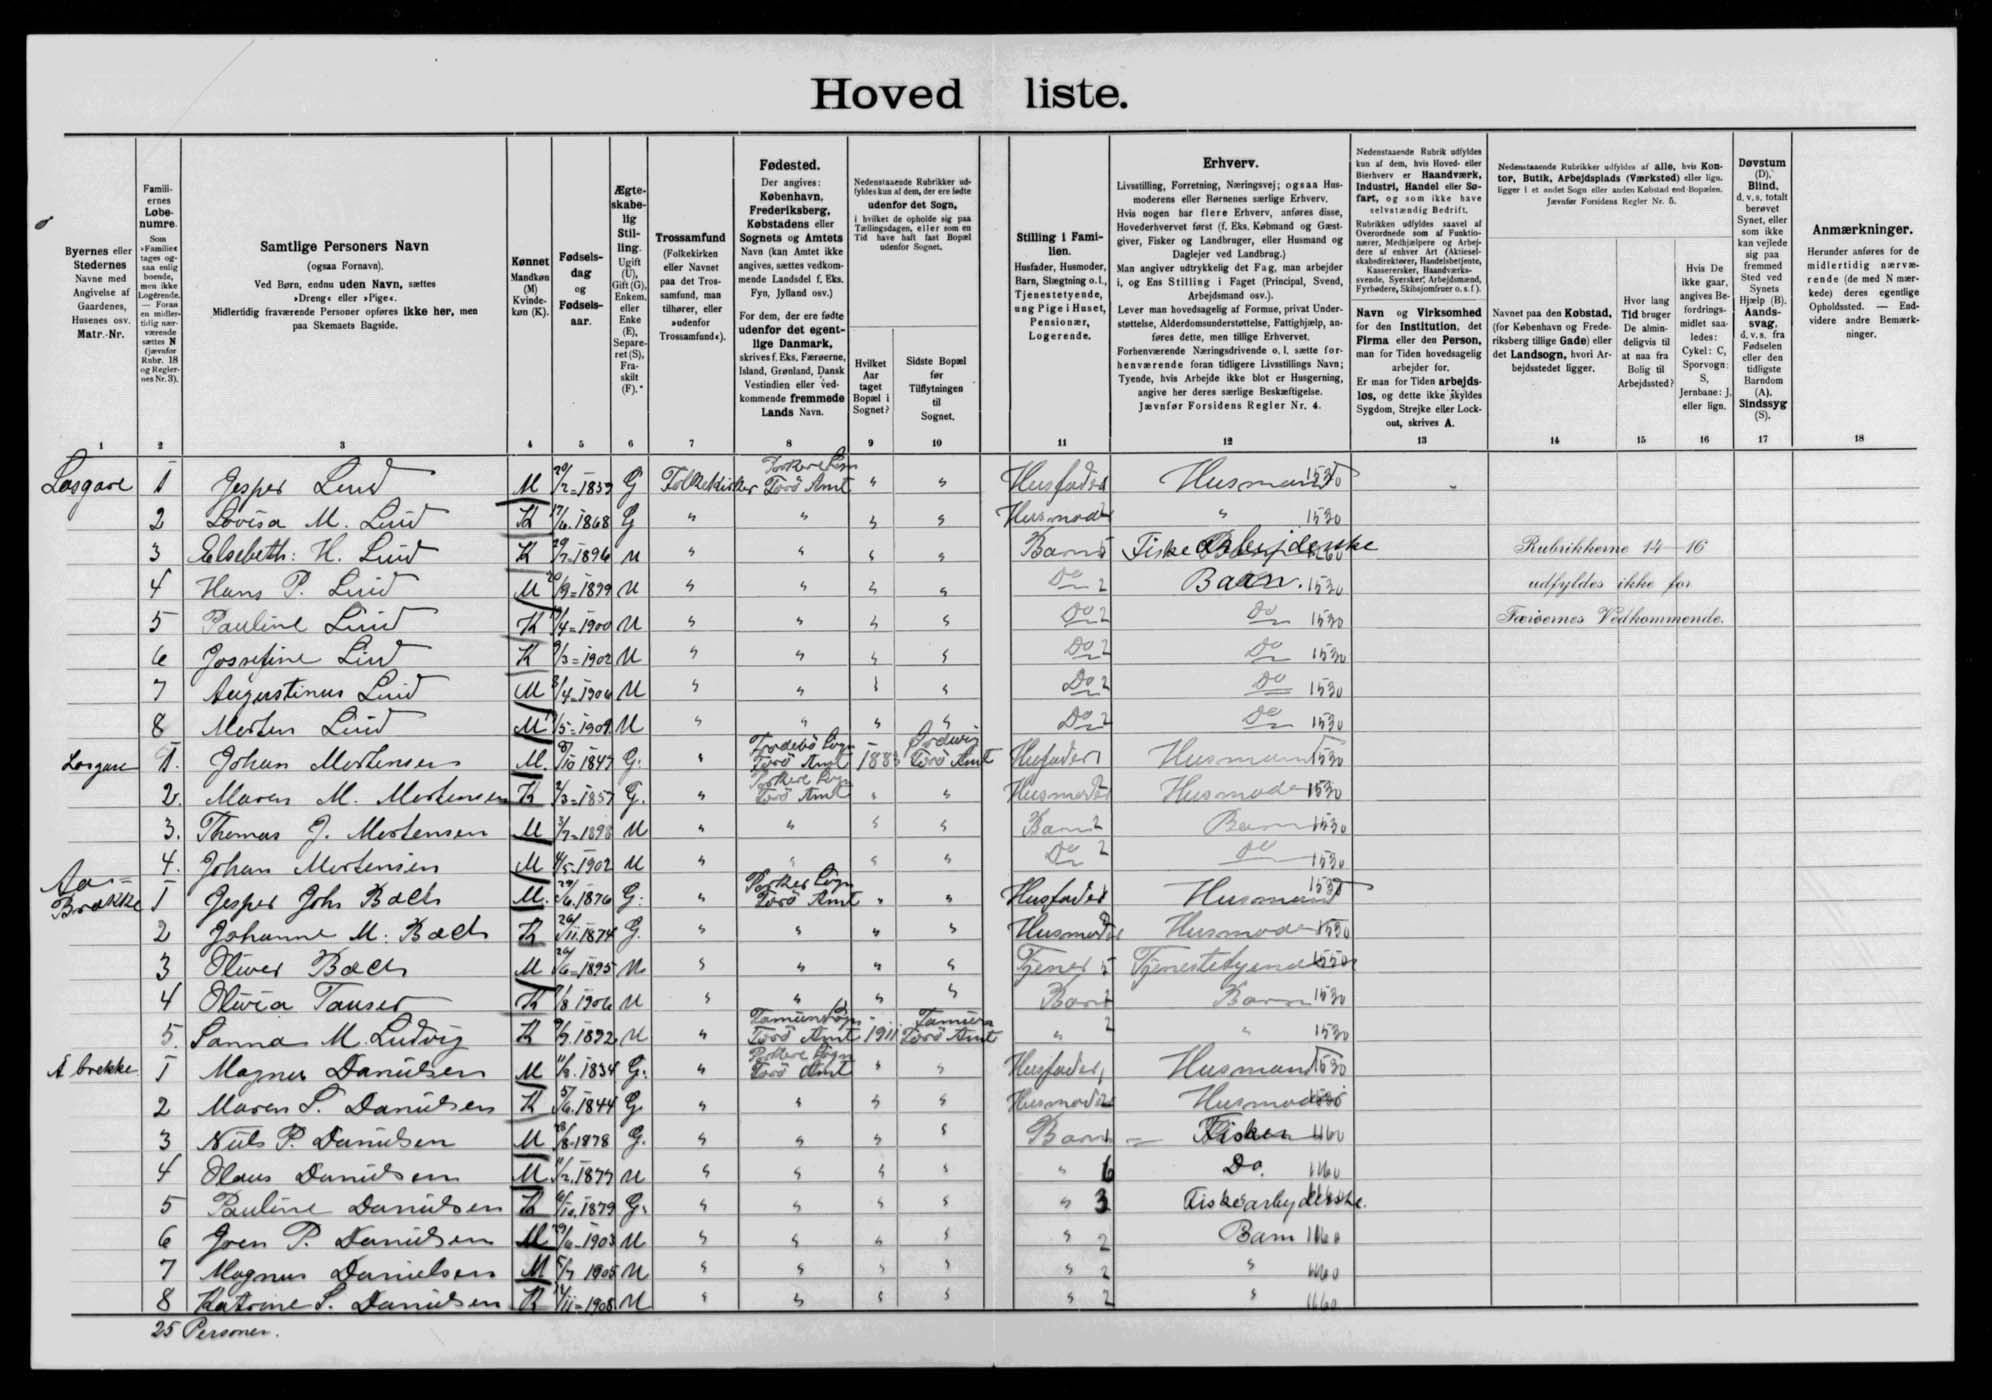 Hoved liste.
Byernes eller Stedernes Navne med Angivelse af Gaardenes, Husenes osv. Matr.-Nr.
Famili- ernes Løbe- numre. Som »Familie« tages og- saa enlig boende, men ikke Logérende. — Foran en midler- tidig nær- værende sættes N (jævnfør Rubr. 18 og Regler- nes Nr. 3).
Samtlige Personers Navn
(ogsaa Fornavn).
Ved Børn, endnu uden Navn, sættes
»Dreng« eller »Pige«.
Midlertidig fraværende Personer opføres ikke her, men
paa Skemaets Bagside.
Kønnet Mandkøn (M) Kvinde- køn (K).
Fødsels- dag og Fødsels- aar.
Ægte- skabe- lig Stil- ling. Ugift (U), Gift (G), Enkem. eller Enke (E), Separe- ret (S), Fra- skilt (F).
Trossamfund (Folkekirken eller Navnet paa det Tros- samfund, man tilhører, eller »udenfor Trossamfund«).
Fødested.
Der angives: København, Frederiksberg, Købstadens eller Sognets og Amtets Navn (kan Amtet ikke angives, sættes vedkom- mende Landsdel f. Eks. Fyn, Jylland osv.)
For dem, der ere fødte udenfor det egent- lige Danmark, skrives f. Eks. Færøerne, Island, Grønland, Dansk Vestindien eller ved- kommende fremmede Lands Navn.
Nedenstaaende Rubrikker ud- fyldes kun af dem, der ere fødte udenfor det Sogn, i hvilket de opholde sig paa Tællingsdagen, eller som en Tid have haft fast Bopæl udenfor Sognet.
Hvilket Aar taget Bopæl i Sognet?
Sidste Bopæl før Tilflytningen til Sognet.
Stilling i Fami- lien.
Husfader, Husmoder, Barn, Slægtning o. l., Tjenestetyende, ung Pige i Huset, Pensionær, Logerende.
Erhverv.
Livsstilling, Forretning, Næringsvej; ogsaa Hus- moderens eller Børnenes særlige Erhverv.
Hvis nogen har flere Erhverv, anføres disse, Hovederhvervet først (f. Eks. Købmand og Gæst- giver, Fisker og Landbruger, eller Husmand og Daglejer ved Landbrug.)
Man angiver udtrykkelig det Fag, man arbejder i, og Ens Stilling i Faget (Principal, Svend, Arbejdsmand osv.).
Lever man hovedsagelig af Formue, privat Under- støttelse, Alderdomsunderstøttelse, Fattighjælp, an- føres dette, men tillige Erhvervet.
Forhenværende Næringsdrivende o. l. sætte for- henværende foran tidligere Livsstillings Navn; Tyende, hvis Arbejde ikke blot er Husgerning, angive her deres særlige Beskæftigelse.
Jævnfør Forsidens Regler Nr. 4.
Nedenstaaende Rubrik udfyldes kun af dem, hvis Hoved- eller Bierhverv er Haandværk, Industri, Handel eller Sø- fart, og som ikke have selvstændig Bedrift.
Rubrikken udfyldes saavel af Overordnede som af Funktio- nærer, Medhjælpere og Arbej- dere af enhver Art (Aktiesel- skabsdirektører, Handelsbetjente, Kasserersker, Haandværks- svende, Syersker, Arbejdsmænd, Fyrbødere, Skibsjomfruer o. s. f.).
Navn og Virksomhed for den Institution, det Firma eller den Person, man for Tiden hovedsagelig arbejder for.
Er man for Tiden arbejds- løs, og dette ikke skyldes Sygdom, Strejke eller Lock- out, skrives A.
Nedenstaaende Rubrikker udfyldes af alle, hvis Kon- tor, Butik, Arbejdsplads (Værksted) eller lign. ligger i et andet Sogn eller anden Købstad end Bopælen. Jævnfør Forsidens Regler Nr. 5.
Navnet paa den Købstad, (for København og Frede- riksberg tillige Gade) eller det Landsogn, hvori Ar- bejdsstedet ligger.
Hvor lang Tid bruger De almin- deligvis til at naa fra Bolig til Arbejdssted?
Hvis De ikke gaar, angives Be- fordrings- midlet saa- ledes: Cykel: C, Sporvogn: S, Jernbane: J, eller lign.
Døvstum (D), Blind, d. v. s. totalt berøvet Synet, eller som ikke kan vejlede sig paa fremmed Sted ved Synets Hjælp (B). Aands- svag, d. v. s. fra Fødselen eller den tidligste Barndom (A). Sindssyg (S).
Anmærkninger.
Herunder anføres for de midlertidig nærvæ- rende (de med N mær- kede) deres egentlige Opholdssted. — End- videre andre Bemærk- ninger.
1 2 3 4 5 6 7 8 9 10 11 12 13 14 15 16 17 18
1 Jesper Lind M 1859 G Folkekirken Porkere Sogn Færø Amt " " Husfader Husmand 1530
2 Lovisa M. Lind K 1868 G " " " " Husmoder " 1530
3 Elsebeth: H. Lind K 1896 U " " " " Barn 5 Fiskearbejderske Rubrikkerne 14–16
4 Hans P. Lind M 1899 U " " " " Do 2 Barn. 1530 udfyldes ikke for
5 Pauline Lind K 1900 U " " " " Do 2 Do 1530 Færøernes Vedkommende.
6 Jossefine Lind K 1902 U " " " " Do 2 Do 1530
7 Augustinus Lind M U " " " " Do 2 Do 1530
8 Morten Lind M 1909 U " " " " Do 2 Do 1530
1. Johan Mortensen M. 1847 G. " Færø Amt 1883 Færø Amt Husfader Husmand 1530
2. Maren M. Mortensen K 1857 G. " Porkere Sogn Færø Amt " " Husmoder Husmoder 1530
3. Thomas J. Mortensen M 1898 U " " " " Barn 2 Barn 1530
4. Johan Mortensen M 1902 U " " " " Do 2 Do 1530
1 Jesper Joh Bæch M. 1876 G. " Porkere Sogn Færø Amt " " Husfader Husmand 1530
2 Johanne M. Bæch K 1874 G. " " " " Husmoder Husmoder 1530
3 Oliver Bæch M 1895 U " " " " Tjener 5 Tjenestetyende
4 Olivia Tausen K 1906 U " " " " Barn 2 Barn 1530
5. Sanna M. Ludvig K 1892 U " Færø Amt 1911 Færø Amt " 2 " 1530
Á brekke 1 Magnus Danielsen M 1834 G. " Porkere Sogn Færø Amt " " Husfader Husmand 1530
2 Maren S. Danielsen K 1844 G. " " " " Husmoder Husmoder
3 Niels P. Danielsen M 1878 G. " " " " Barn Fisker 1160
4 Olaus Danielsen M 1877 U " " " " " 6 Do. 1160
5 Pauline Danielsen K 1879 G. " " " " " 3 Fiskearbejderske.
6 Joen P. Danielsen M 1903 U " " " " " 2 Barn 1160
7 Magnus Danielsen M 1905 U " " " " " 2 " 1160
8 Katrine S. Danielsen K 1908 U " " " " " 2 " 1160
25 Personer.